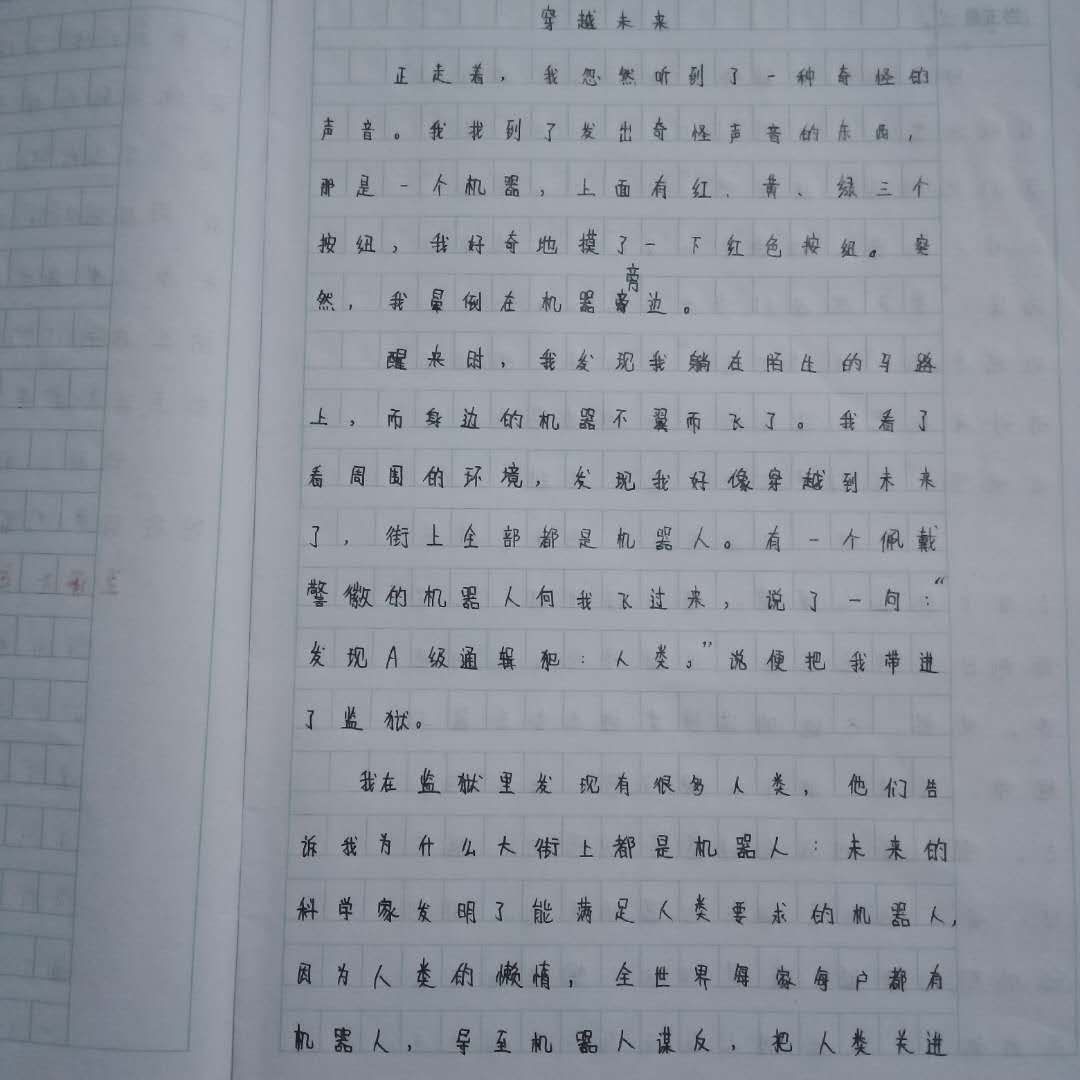 穿越未来
正走着，我忽然听到了一种奇怪的
声音。我找到了发出奇怪声音的东西，
那是一个机器，上面有红、黄、绿三个
按纽，我好奇地摸了一下红色按纽。突
然，我晕倒在机器旁边。
醒来时，我发现我躺在陌生的马路
上，而身边的机器不翼而飞了。我看了
看周围的环境，发现我好像穿越到未来
了，街上全部都是机器人。有一个佩戴
警徽的机器人向我飞过来，说了一句：“
发现A级通辑犯：人类。”说便把我带进
了监狱。
我在监狱里发现有很多人类，他们告
诉我为什么大街上都是机器人：未来的
科学家发明了能满足人类要求的机器人，
因为人类的懒惰，全世界每家每户都有
机器人，导至机器人谋反，把人类关进